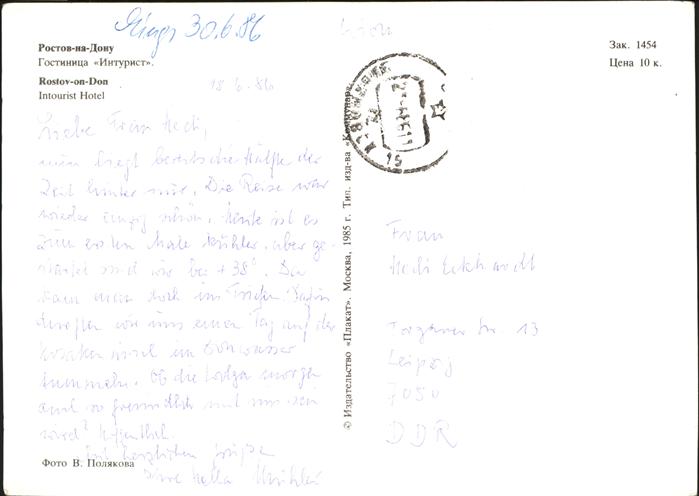 30.6.86
Ростов-на-Дону
Гостиница «Интурист».
Rostov-on-Don
Intourist Hotel
18.6.86
Зак. 1454
Цена 10 к.
Liebe Frau Hedi,
nun liegt bereits die Hälfte der
Zeit hinter mir. Die Reise war
wieder schön. Heute ist es
zum ersten Male kühler, aber ge-
startet sind wir bei +38°. Da
kann man noch im
durften wir uns einen Tag auf der
Kosakeninsel im Donwasser
tummeln. Ob die Wolga morgen
auch so freundlich mit uns sein
wird? Hoffentlich.
Mit herzlichen Grüßen
Ihre Hella
Фото В. Полякова
© Издательство «Плакат». Москва, 1985 г. Тип. изд-ва «Коммунар».
Frau
Hedi Eckhardt
Torgauer Str. 13
Leipzig
7050
DDR